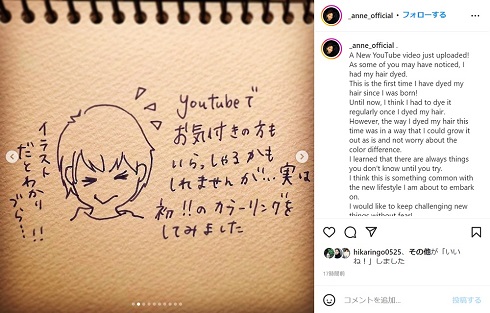 Youtubeで
お気付きの方も
いらっしゃるかも
しれませんが…実は
初!!のカラーリングを
してみました
イラスト
だとわかり
づら…!!
_anne_official・フォローする
_anne_official .
A New YouTube video just uploaded!
As some of you may have noticed, I
had my hair dyed.
This is the first time I have dyed my
hair since I was born!
Until now, I think I had to dye it
regularly once I dyed my hair.
However, the way I dyed my hair this
time was in a way that I could grow it
out as is and not worry about the
color difference.
I learned that there are always things
you don't know until you try.
I think this is something common with
the new lifestyle I am about to embark
on.
I would like to keep challenging new
things without fear!
hikaringo0525、その他が「いい
ね！」しました
17時間前
コメントを追加...
投稿する